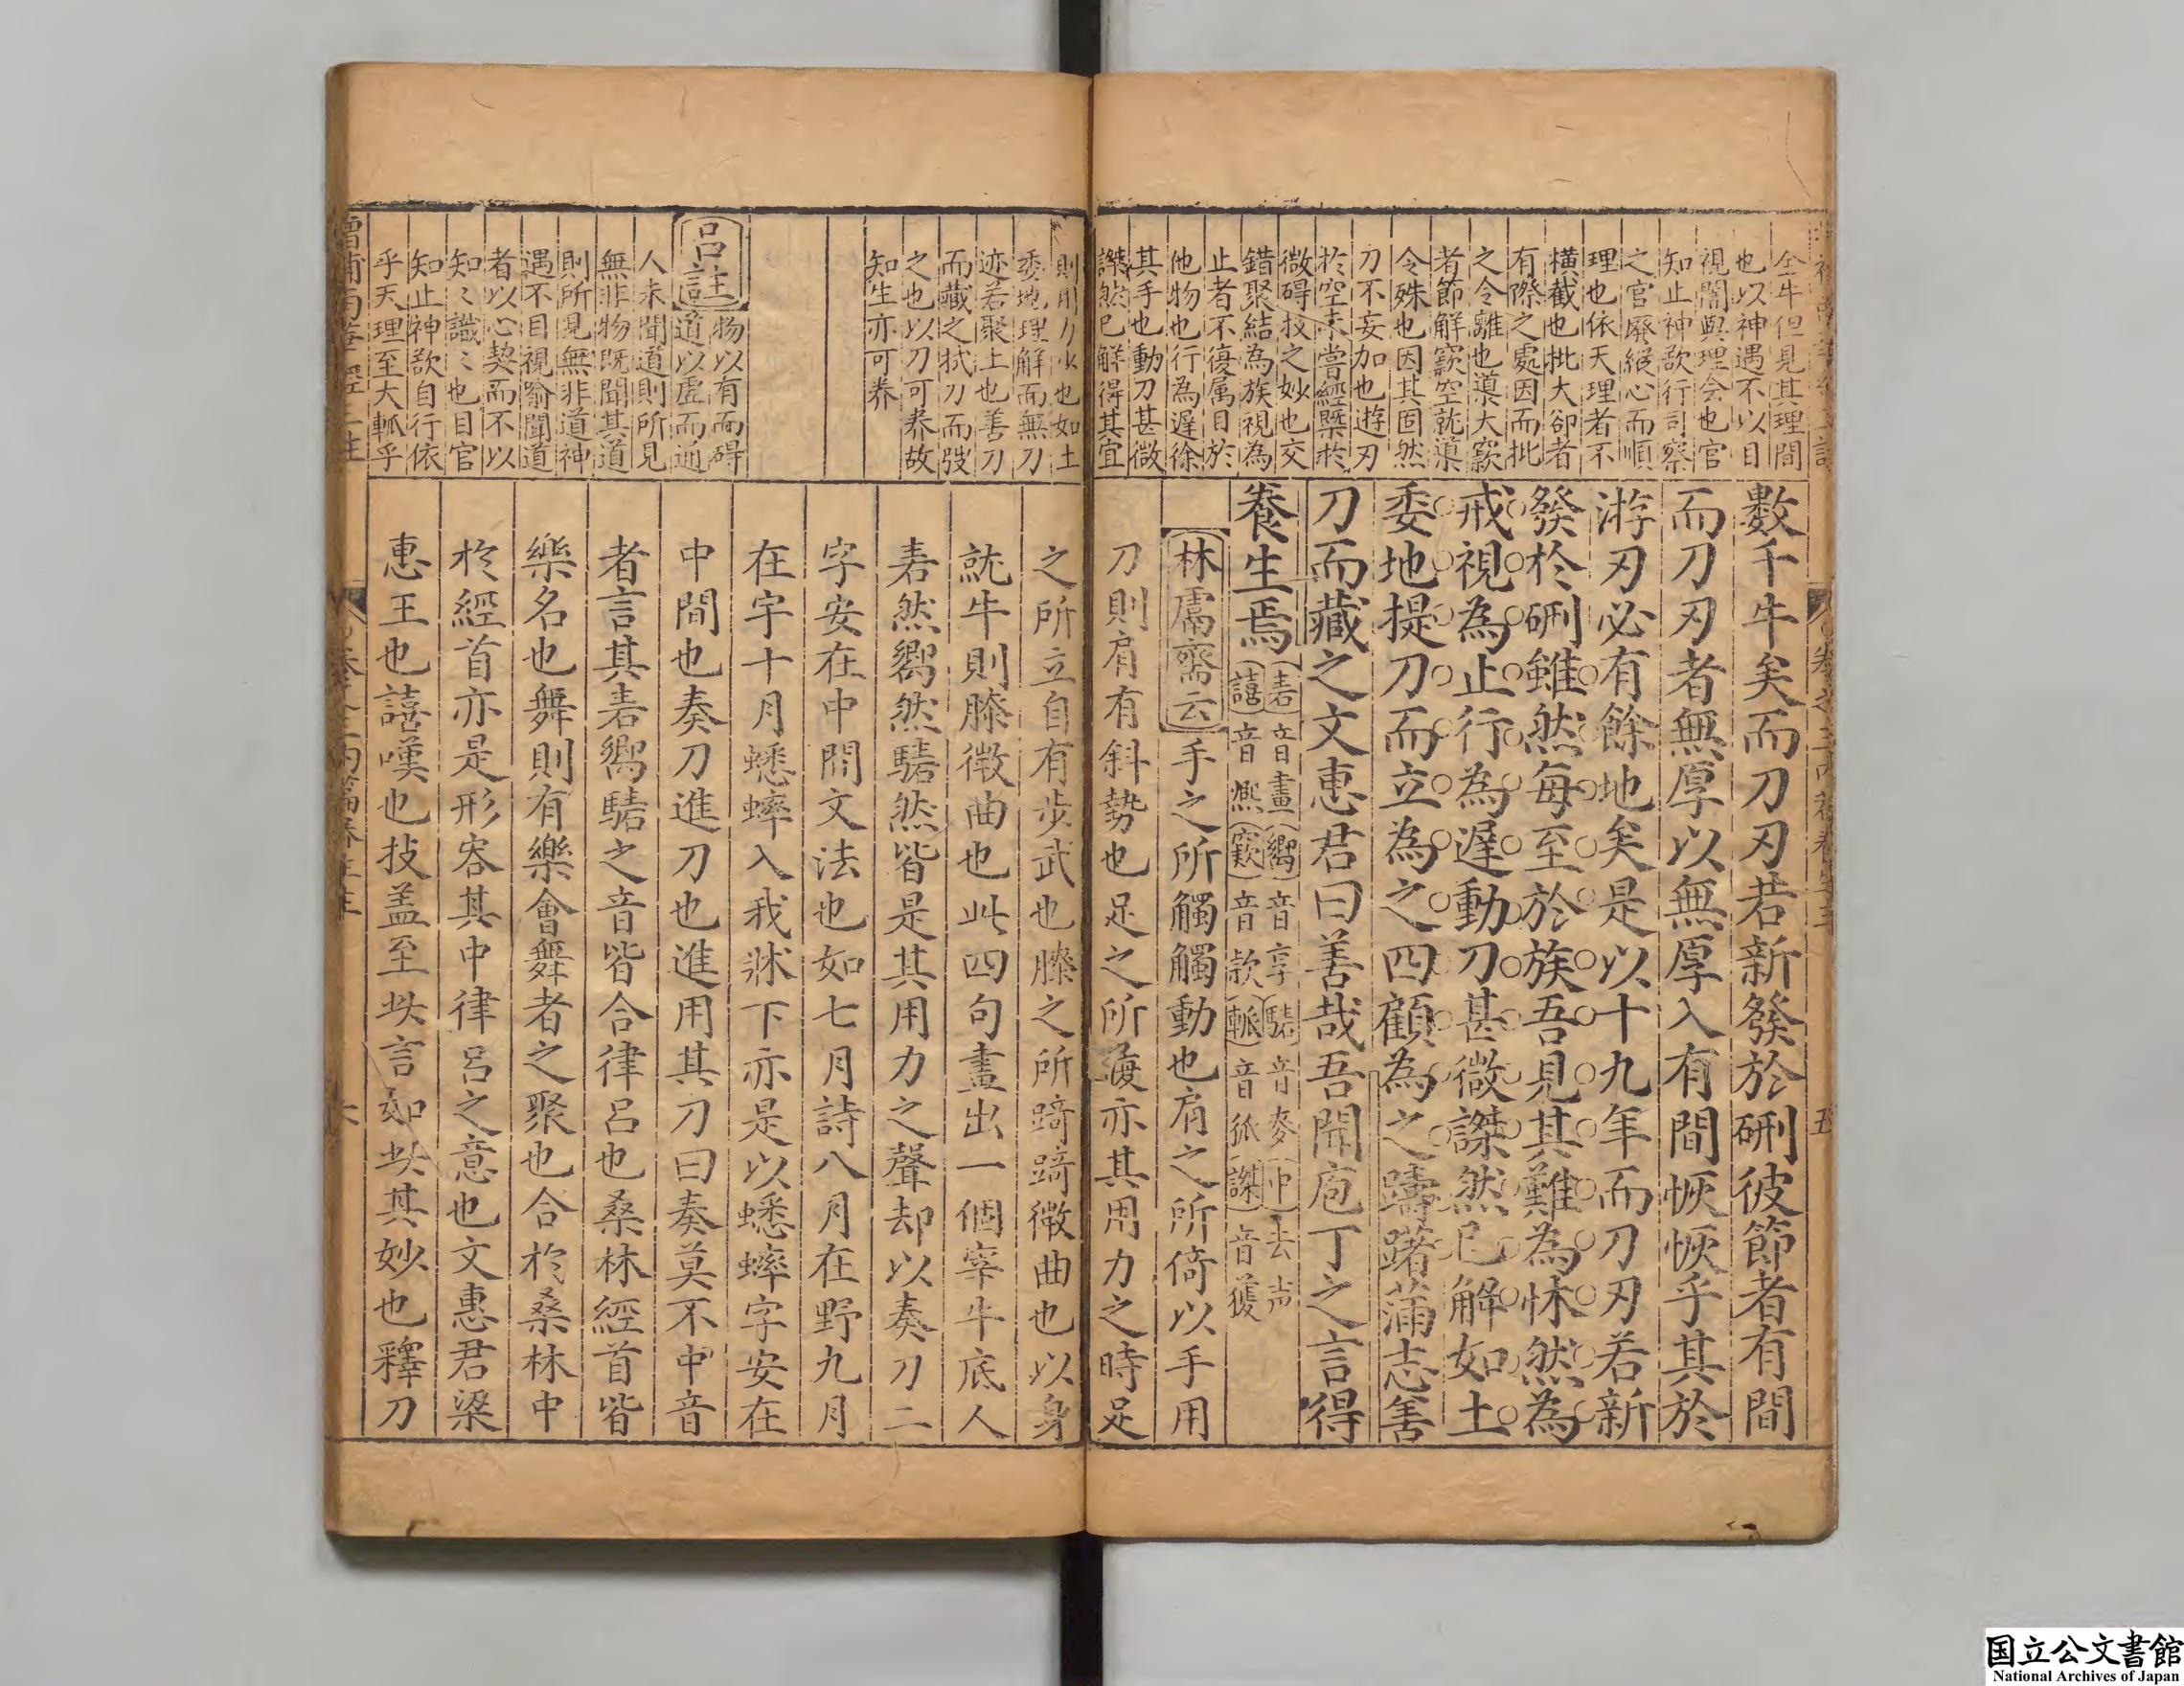 全牛但見其理間
也以神遇不以目
視闇與理会也官
知止神欲行司察
之官廢絕心而順
理也依天理者不
横截也批大卻者
有際之處因而批
之令離也導大窾
者節解窾空就導
令殊也因其固然
刀不妄加也遊刃
於空未嘗經槩於
微碍技之妙也交
錯聚結為族視為
止者不復属目於
他物也行為遅徐
其手也動刀甚微
謋然已解得其宜
數千牛矣而刀刃若新發於硎彼節者有間
而刀刃者無厚以無厚入有間恢恢乎其於
游刃必有餘地矣是以十九年而刀刃若新
發於硎雖然每至於族吾見其難為怵然為
戒視為止行為遲動刀甚微謋然已解如土
委地提刀而立為之四顧為之躊躇滿志善
刀而藏之文惠君曰善哉吾聞庖丁之言得
養生焉
砉音畫嚮音享騞音麥中去声
譆音熈窾音欵軱音孤謋音獲
林鬳齋云手之所觸觸動也肩之所倚以手用
刀則肩有斜勢也足之所履亦其用力之時足
則用力火也如土
委地理解而無刀
迹若聚土也善刀
而藏之拭刀而弢
之也以刀可养故
知生亦可养
呂註
物以有而碍
道以虛而通
人未聞道則所見
無非物既聞其道
則所見無非道神
遇不目視喻聞道
者以心契而不以
知〻識〻也目官
知止神欲自行依
乎天理至大軱乎
之所立自有步武也膝之所踦踦微曲也以身
就牛則膝微曲也此四句畫出一個宰牛底人
砉然嚮然騞然皆是其用力之聲却以奏刀二
字安在中間文法也如七月詩八月在野九月
在宇十月蟋蟀入我牀下亦是以蟋蟀字安在
中間也奏刀進刀也進用其刀曰奏莫不中音
者言其砉嚮騞之音皆合律呂也桑林經首皆
樂名也舞則有樂會舞者之聚也合於桑林中
於經首亦是形容其中律呂之意也文惠君梁
惠王也譆嘆也技盖至此言如此其妙也釋刀
国立公文書館
National Archives of Japan